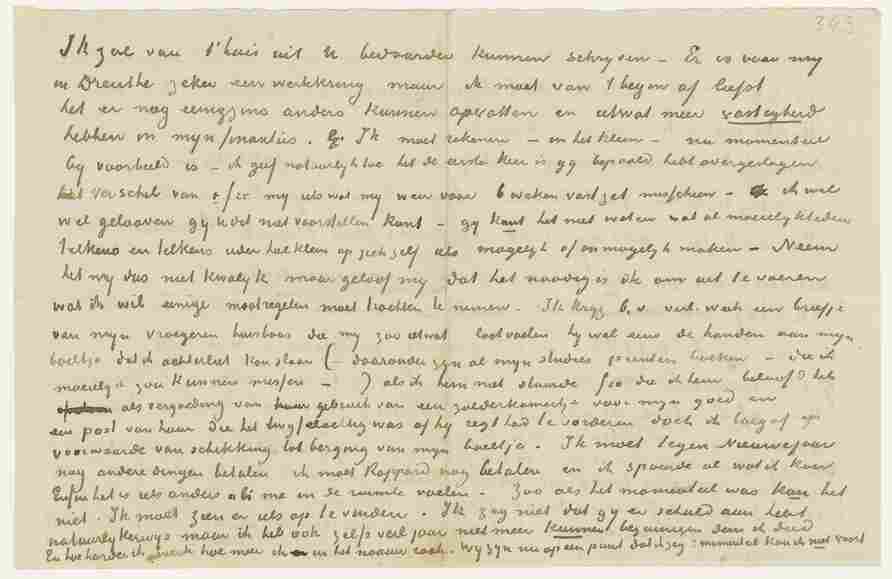 343
Ik zal van t'huis uit U bedaarder kunnen schryven – Er is voor my
in Drenthe zeker een werkkring maar ik moet van t begin af liefst
het er nog eenigzins anders kunnen opvatten en wat meer vastigheid
hebben in myn finanties. Ik moet rekenen – in het klein – nu momenteel
by voorbeeld is – ik geef natuurlyk toe het de eerste keer is gy bepaald hebt overgeslagen
het verschil van f my iets wat my weer voor 6 weken vast zet misschien – ik wil
wel gelooven gy U dit niet voorstellen kunt – gy kunt het niet weten wat al moeielykheden
telkens en telkens ieder hoe klein op zich zelf iets mogelyk of onmogelyk maken – Neem
het my dus niet kwalyk maar geloof my dat het noodig is ik om uit te voeren
wat ik wil eenige maatregelen moet trachten te nemen. Ik kryg b.v. verl. week een briefje
van myn vroegeren huisbaas die my zoo ietwat laat voelen hy wel eens de handen aan myn
boeltje dat ik achterliet kon slaan (– daaronder zyn al myn studies prenten boeken – die ik
moeielyk zou kunnen missen –) als ik hem niet stuurde f die ik hem beloofd heb
als vergoeding van gebruik van een zolderkamertje voor myn goed en
een post van huur die het twyfelachtig was of hy regt had te vorderen doch ik toegaf op
voorwaarde van schikking tot berging van myn boeltje. Ik moet tegen Nieuwejaar
nog andere dingen betalen ik moet Rappard nog betalen en ik spaarde al wat ik kon
Enfin het is iets anders als me in de ruimte voelen. Zoo als het momenteel was kan het
niet. Ik moet zien er iets op te vinden. Ik zeg niet dat gy er schuld aan hebt
natuurlykerwys maar ik heb ook zelfs verl jaar niet meer kunnen bezuinigen dan ik deed
En hoe harder ik werk hoe meer ik in het naauw raak. Wy zyn nu op een punt dat ik zeg: momenteel kan ik niet voort